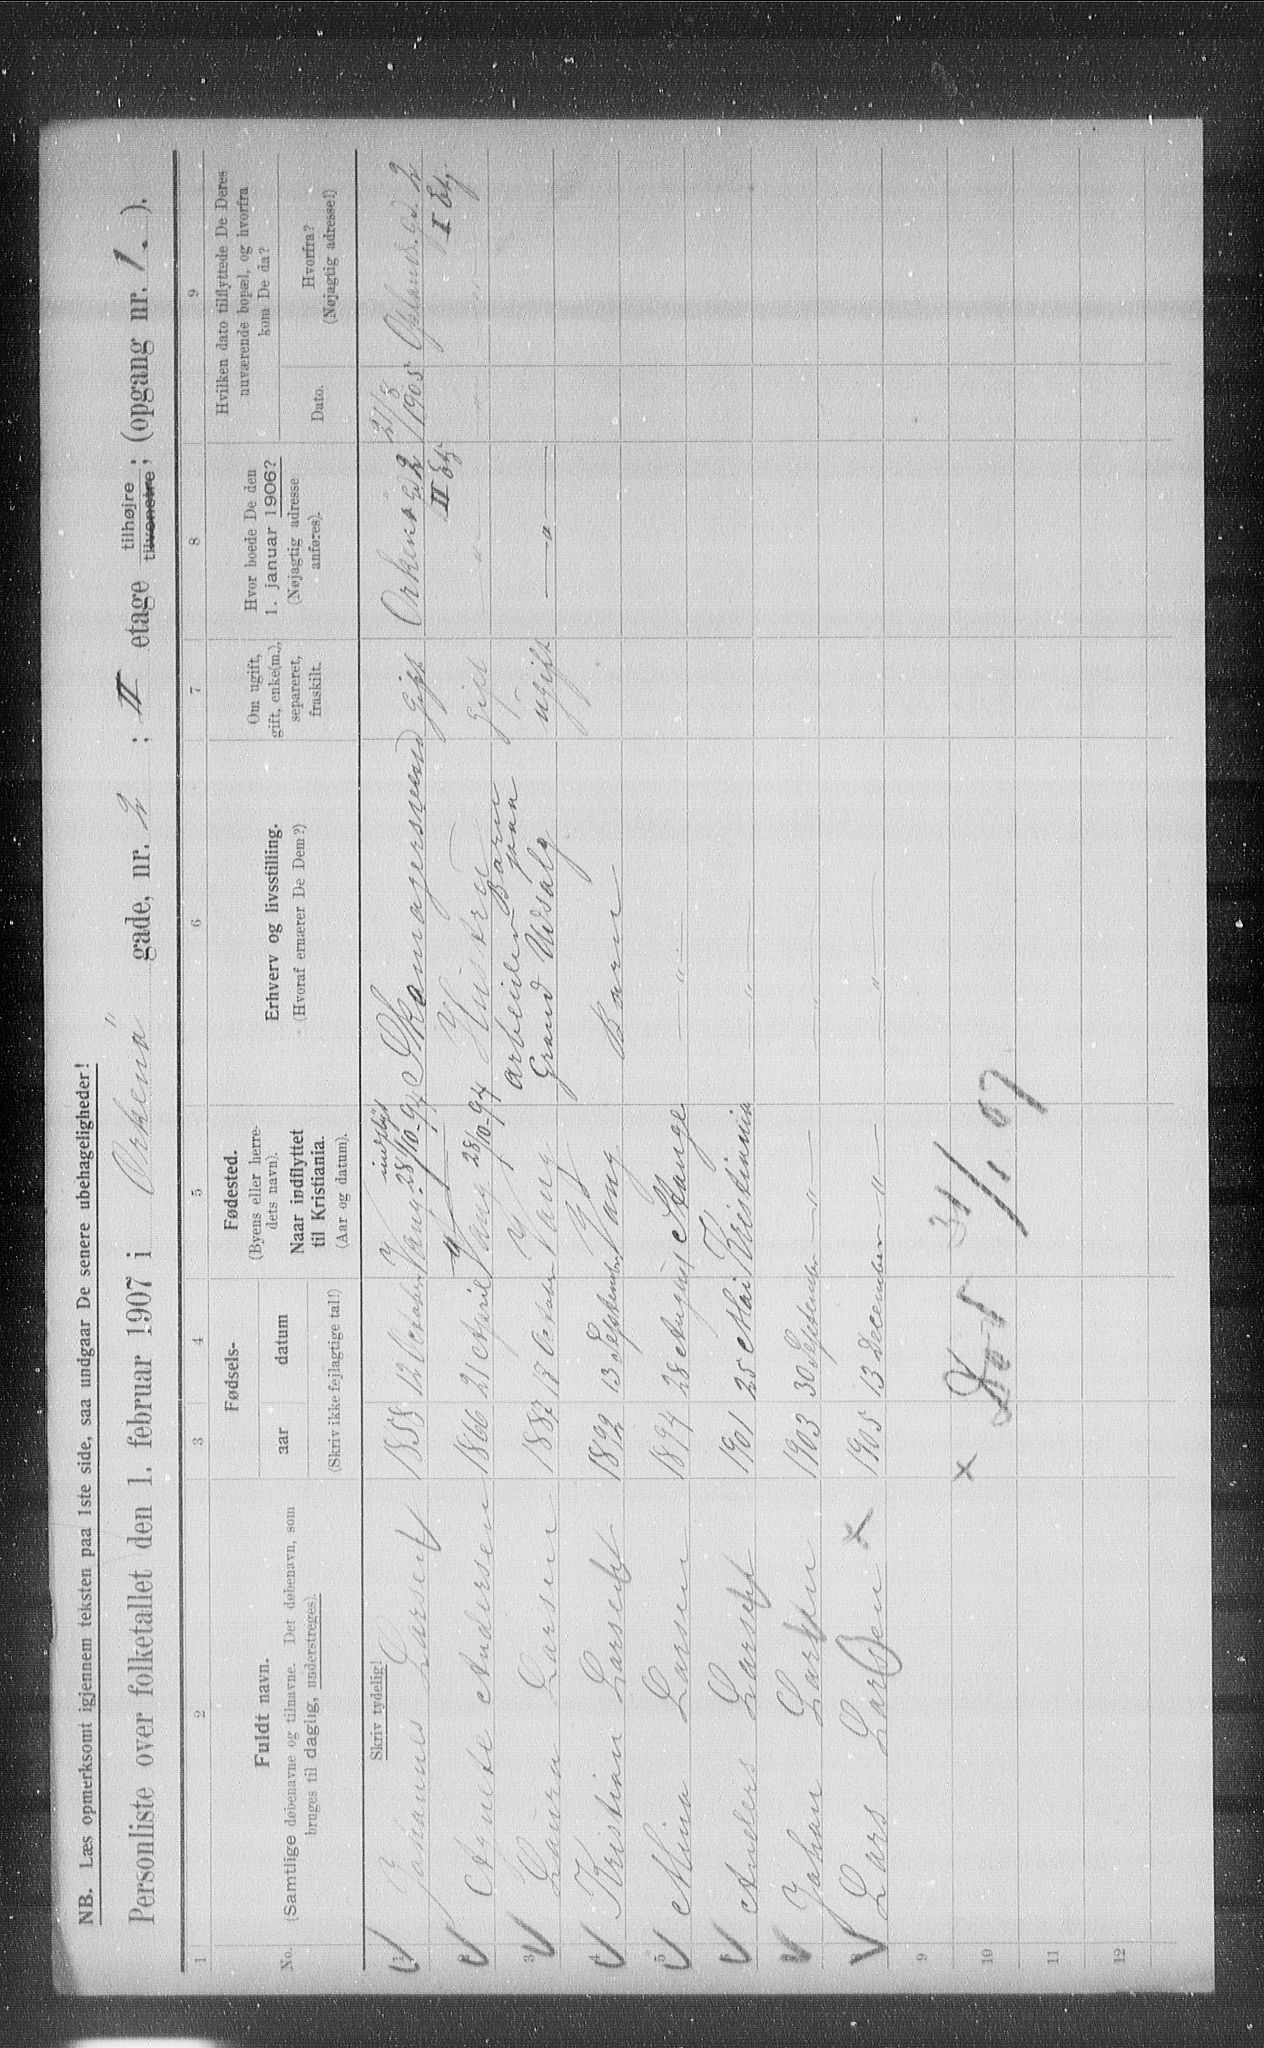 NB. Læs opmerksomt igjennem teksten paa 1ste side, saa undgaar De senere ubehageligheder!
Personliste over folketallet den 1. februar 1907 i Orkenø gade, nr. 2 ; II etage tilhøjre tilvenstre ; (opgang nr. 1. ).
1 2 3 4 5 6 7 8 9
No.
Fuldt navn.
(Samtlige døbenavne og tilnavne. Det døbenavn, som
bruges til daglig, understreges).
Fødsels-
aar datum
(Skriv ikke fejlagtige tal!)
Fødested.
(Byens eller herre-
dets navn).
Naar indflyttet
til Kristiania.
(Aar og datum).
Erhverv og livsstilling.
(Hvoraf ernærer De Dem?)
Om ugift,
gift, enke(m.),
separeret,
fraskilt.
Hvor boede De den
1. januar 1906?
(Nøjagtig adresse
anføres).
Hvilken dato tilflyttede De Deres
nuværende bopæl, og hvorfra
kom De da?
Dato.
Hvorfra?
(Nøjagtig adresse!)
Skriv tydelig!
1 Johannes Larsen 1858 12 October Vang indflyt 28/10-94 Skomagersvend Gift Orkenø gd 2 II Etg 21/8 1905 Oplands.gd. 2 I Etg.
2 Agnete Andersen 1866 21 April Vang 28/10-94 Hustru Gift " " "
3 Laura Larsen 1887 17 October Vang Barn arbeider paa Grand Utsalg ugift — " —
4 Kristian Larsen 1892 13 September Vang Barn
5 Mina Larsen 1894 28 August Stange — " —
Anders Larsen 1901 25 Mai Kristiania "
Johan Larsen 1903 30 September — " — "
Lars Larsen × 1905 13 December — " — — " —
9
10 × Død 31/1 07
11
12